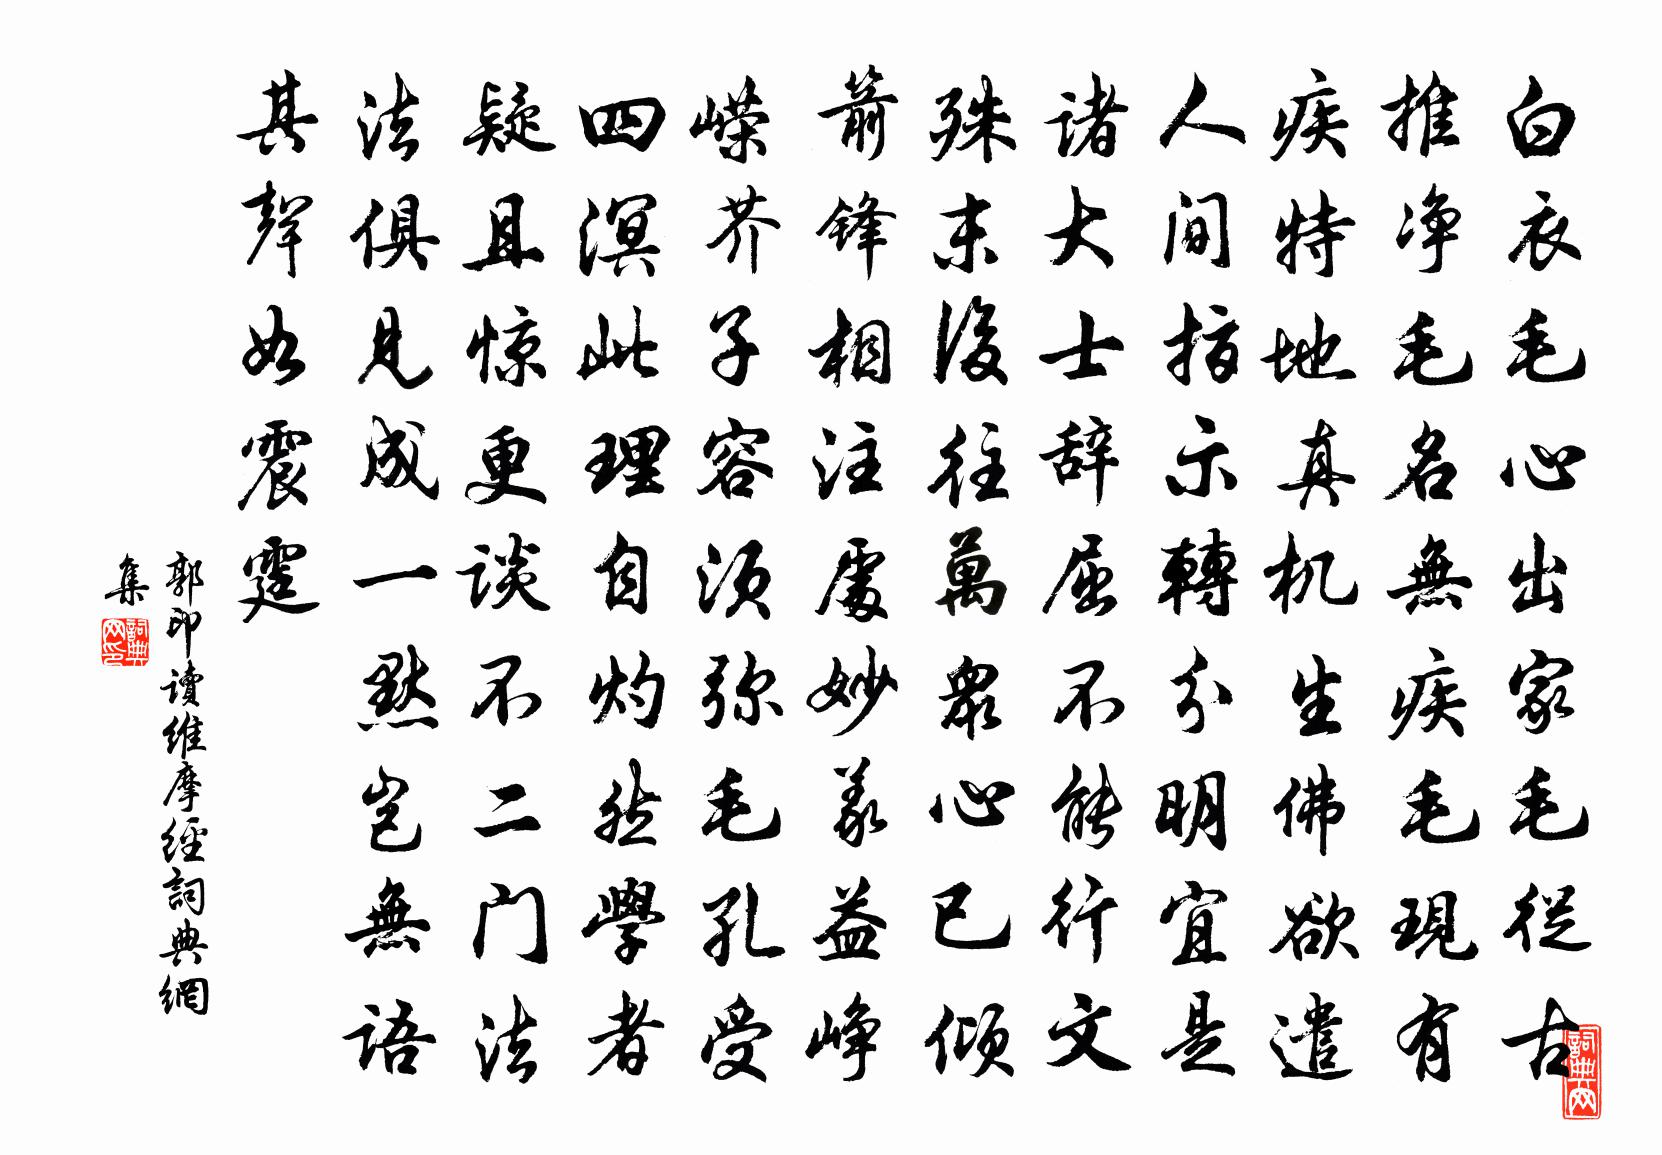 白衣毛心出家毛從古
推净毛名無疾毛現有
疾特地真机生佛欲遣
人间指示轉分明宜是
诸大士辞屈不能行文
殊末後往萬衆心已倾
箭锋相注處妙義益峥
嵘芥子容须弥毛孔受
四溟此理自灼然學者
疑且惊更谈不二门法
法俱見成一默岂無语
其聲如震霆
郭印讀維摩經詞典網
集
詞典网印
詞典网